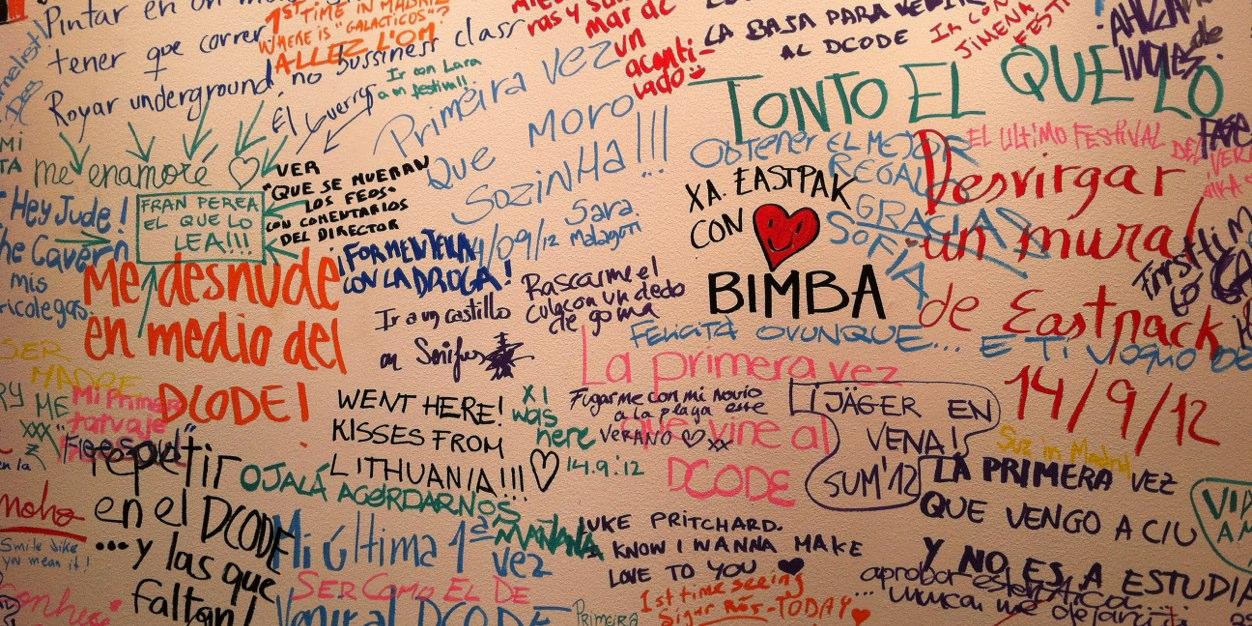 Pintar en un
tener que correr
Royar underground
1ST TIME IN MADRID
WHERE IS "GALACTICOS"?
ALLEZ L'OM
no bussinest class
Ir con Lara
a un festival!!
me enamoré ♡
FRAN PEREA
EL QUE LO
LEA!!!
VER
"QUE SE MUERAN
LOS FEOS"
CON COMENTARIOS
DEL DIRECTOR
Hey Jude!
The Cavern
mis
Primeira vez
que moro
Sozinha!!!
Sara
Malagati
4/09/12
mar de
un
acanti-
lado
LA BAJA PARA VENIR
AL DCODE
Ir con
JIMENA
FEST
TONTO EL QUE LO
Obtener EL MEJOR
REGALO
GRACIAS
SOFIA
EL ULTIMO FESTIVAL
XA. EASTPAK
CON
BIMBA
Desvirgar
un mural
de Eastpack
14/9/12
¡FORMENTERA
CON LA DROGA!
Me desnudé
en medio del
DCODE!
Ir a un castillo
Rascarme el
culo con un dedo
de goma
FELICITÀ OVUNQUE... E TI
La primera vez
que vine al
DCODE
Fugarme con mi novio
a la playa este
VERANO ♡ xx
JÄGER EN
VENA!
SUM'12
Suz in Madrid
LA PRIMERA VEZ
QUE VENGO A CIU
Y NO ES A ESTUDIA
SER
MADRE
Mi Primer
tatuaje
"Feesoul"
WENT HERE!
KISSES FROM
LITHUANIA!!! ♡
X I
was
here
14.9.12
repetir
en el DCODE
...y las que
faltan!
OJALÁ ACORDARNOS
MAÑANA
Mi última 1ª
vez
SER COMO EL DE
Venir al DCODE
LUKE PRITCHARD.
I KNOW I WANNA MAKE
LOVE TO YOU
1st time seeing
Sigur Rós - TODAY
PRIMERA
aprobar
nunca me
Smile like
you mean it!